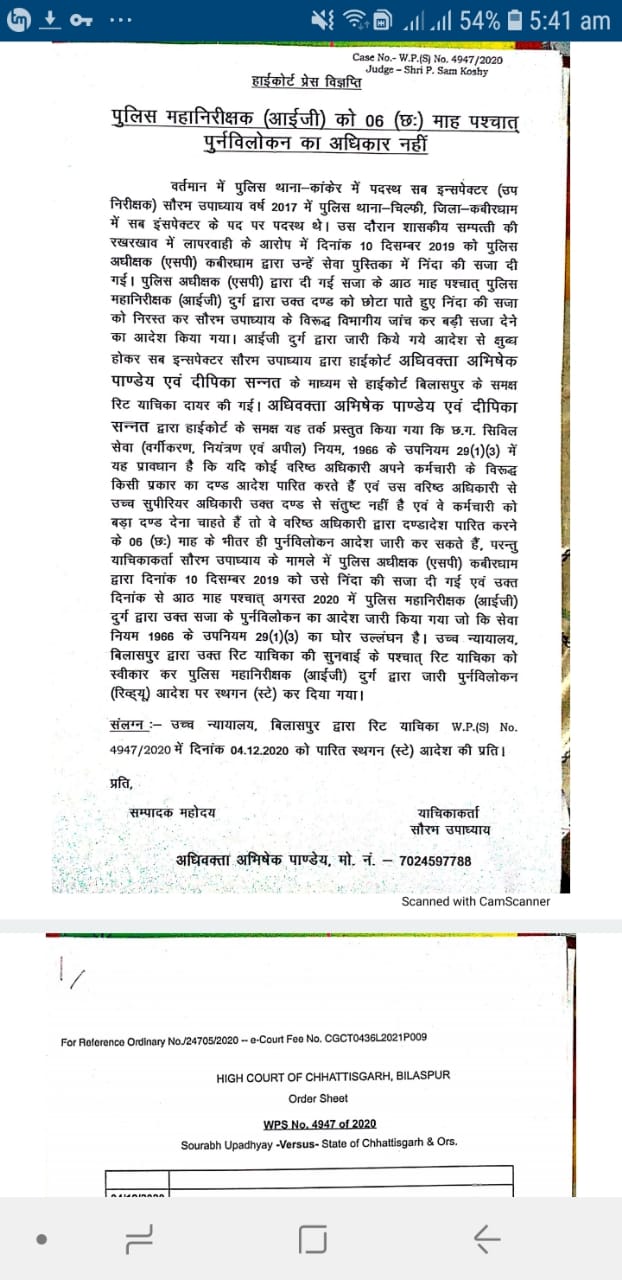 54% 5:41 am
Case No.- W.P.(S) No. 4947/2020
Judge – Shri P. Sam Koshy
हाईकोर्ट प्रेस विज्ञप्ति
पुलिस महानिरीक्षक (आईजी) को 06 (छः) माह पश्चात्
पुर्नविलोकन का अधिकार नहीं
वर्तमान में पुलिस थाना–कांकेर में पदस्थ सब इन्सपेक्टर (उप
निरीक्षक) सौरभ उपाध्याय वर्ष 2017 में पुलिस थाना–चिल्फी, जिला–कबीरधाम
में सब इंसपेक्टर के पद पर पदस्थ थे। उस दौरान शासकीय सम्पत्ती की
रखरखाव में लापरवाही के आरोप में दिनांक 10 दिसम्बर 2019 को पुलिस
अधीक्षक (एसपी) कबीरधाम द्वारा उन्हें सेवा पुस्तिका में निंदा की सजा दी
गई। पुलिस अधीक्षक (एसपी) द्वारा दी गई सजा के आठ माह पश्चात् पुलिस
महानिरीक्षक (आईजी) दुर्ग द्वारा उक्त दण्ड को छोटा पाते हुए निंदा की सजा
को निरस्त कर सौरभ उपाध्याय के विरूद्ध विभागीय जांच कर बड़ी सजा देने
का आदेश किया गया। आईजी दुर्ग द्वारा जारी किये गये आदेश से क्षुब्ध
होकर सब इन्सपेक्टर सौरभ उपाध्याय द्वारा हाईकोर्ट अधिवक्ता अभिषेक
पाण्डेय एवं दीपिका सन्नत के माध्यम से हाईकोर्ट बिलासपुर के समक्ष
रिट याचिका दायर की गई। अधिवक्ता अभिषेक पाण्डेय एवं दीपिका
सन्नत द्वारा हाईकोर्ट के समक्ष यह तर्क प्रस्तुत किया गया कि छ.ग. सिविल
सेवा (वर्गीकरण, नियंत्रण एवं अपील) नियम, 1966 के उपनियम 29(1)(3) में
यह प्रावधान है कि यदि कोई वरिष्ठ अधिकारी अपने कर्मचारी के विरूद्ध
किसी प्रकार का दण्ड आदेश पारित करते हैं एवं उस वरिष्ठ अधिकारी से
उच्च सुपीरियर अधिकारी उक्त दण्ड से संतुष्ट नहीं है एवं वे कर्मचारी को
बड़ा दण्ड देना चाहते हैं तो वे वरिष्ठ अधिकारी द्वारा दण्डादेश पारित करने
के 06 (छः) माह के भीतर ही पुर्नविलोकन आदेश जारी कर सकते हैं, परन्तु
याचिकाकर्ता सौरभ उपाध्याय के मामले में पुलिस अधीक्षक (एसपी) कबीरधाम
द्वारा दिनांक 10 दिसम्बर 2019 को उसे निंदा की सजा दी गई एवं उक्त
दिनांक से आठ माह पश्चात् अगस्त 2020 में पुलिस महानिरीक्षक (आईजी)
दुर्ग द्वारा उक्त सजा के पुर्नविलोकन का आदेश जारी किया गया जो कि सेवा
नियम 1966 के उपनियम 29(1)(3) का घोर उल्लंघन है। उच्च न्यायालय,
बिलासपुर द्वारा उक्त रिट याचिका की सुनवाई के पश्चात् रिट याचिका को
स्वीकार कर पुलिस महानिरीक्षक (आईजी) दुर्ग द्वारा जारी पुर्नविलोकन
(रिव्यू) आदेश पर स्थगन (स्टे) कर दिया गया।
संलग्न :– उच्च न्यायालय, बिलासपुर द्वारा रिट याचिका W.P.(S) No.
4947/2020 में दिनांक 04.12.2020 को पारित स्थगन (स्टे) आदेश की प्रति।
प्रति,
सम्पादक महोदय याचिकाकर्ता
सौरभ उपाध्याय
अधिवक्ता अभिषेक पाण्डेय, मो. नं. – 7024597788
Scanned with CamScanner
1/
For Reference Ordinary No./24705/2020 -- e-Court Fee No. CGCT0436L2021P009
HIGH COURT OF CHHATTISGARH, BILASPUR
Order Sheet
WPS No. 4947 of 2020
Sourabh Upadhyay -Versus- State of Chhattisgarh & Ors.